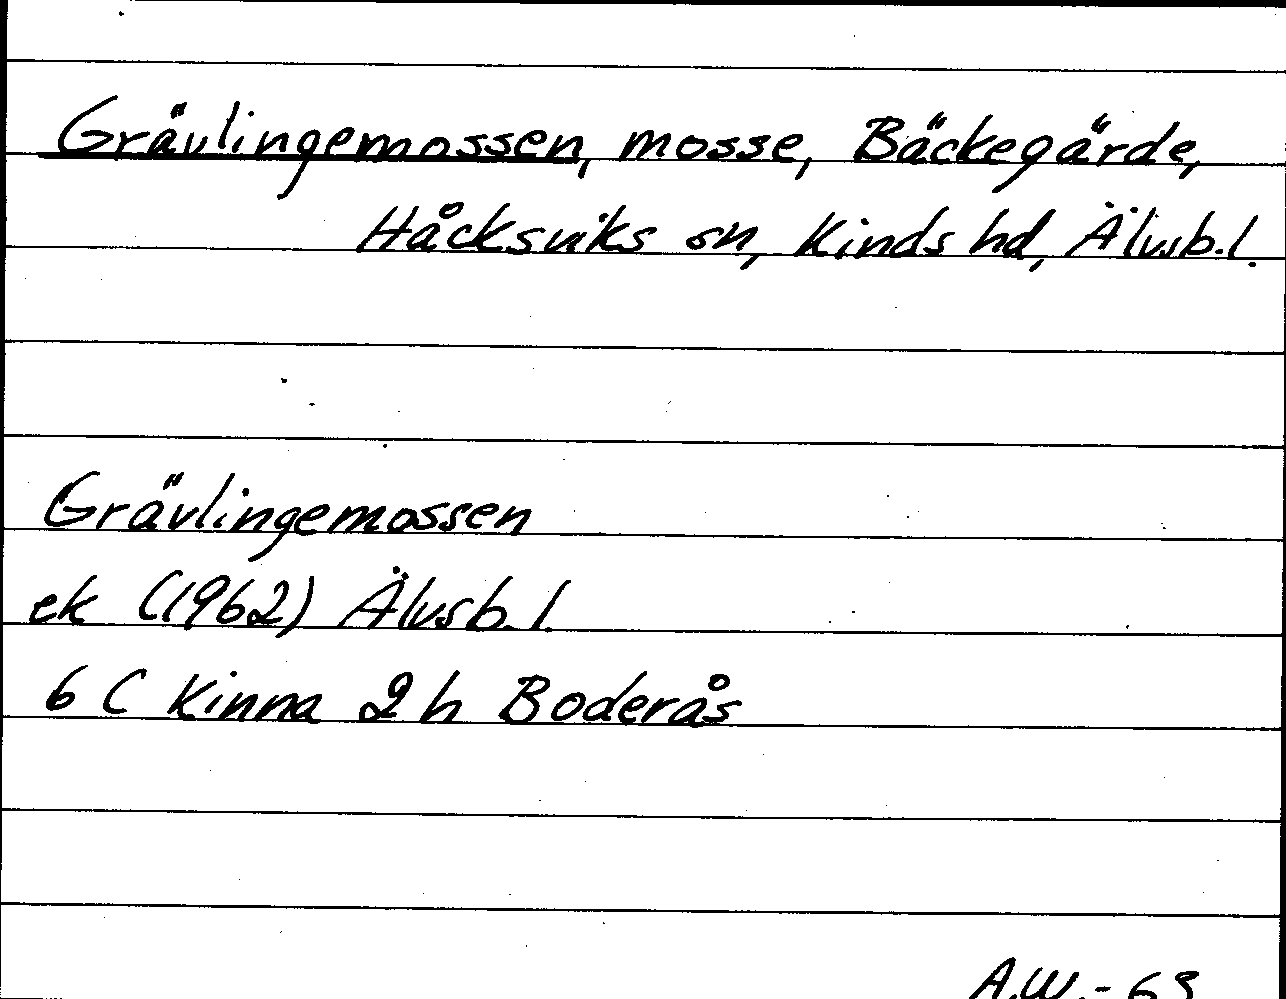 Grävlingemossen, mosse, Bäckegärde,
Håcksviks sn, Kinds hd, Älvsb.l.
Grävlingemossen
ek (1962) Älvsb.l.
6 C Kinna 2 h Boderås
A.W.-63